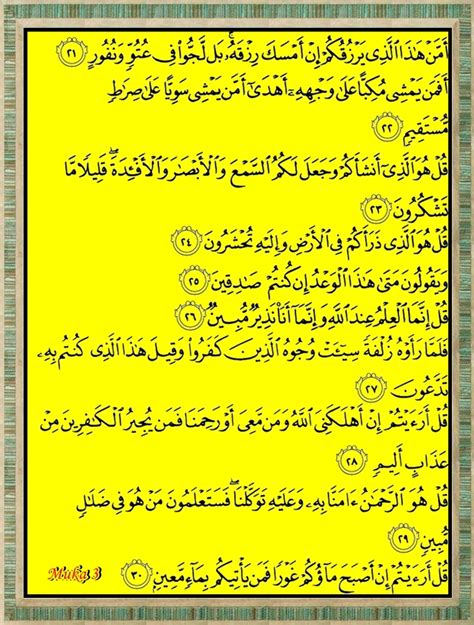 أَمَّنْ هَٰذَا الَّذِي يَرْزُقُكُمْ إِنْ أَمْسَكَ رِزْقَهُ ۚ بَل لَّجُّوا فِي عُتُوٍّ وَنُفُورٍ ٢١
أَفَمَن يَمْشِي مُكِبًّا عَلَىٰ وَجْهِهِ أَهْدَىٰ أَمَّن يَمْشِي سَوِيًّا عَلَىٰ صِرَاطٍ
مُّسْتَقِيمٍ ٢٢
قُلْ هُوَ الَّذِي أَنشَأَكُمْ وَجَعَلَ لَكُمُ السَّمْعَ وَالْأَبْصَارَ وَالْأَفْئِدَةَ ۖ قَلِيلًا مَّا
تَشْكُرُونَ ٢٣
قُلْ هُوَ الَّذِي ذَرَأَكُمْ فِي الْأَرْضِ وَإِلَيْهِ تُحْشَرُونَ ٢٤
وَيَقُولُونَ مَتَىٰ هَٰذَا الْوَعْدُ إِن كُنتُمْ صَادِقِينَ ٢٥
قُلْ إِنَّمَا الْعِلْمُ عِندَ اللَّهِ وَإِنَّمَا أَنَا نَذِيرٌ مُّبِينٌ ٢٦
فَلَمَّا رَأَوْهُ زُلْفَةً سِيئَتْ وُجُوهُ الَّذِينَ كَفَرُوا وَقِيلَ هَٰذَا الَّذِي كُنتُم بِهِ
تَدَّعُونَ ٢٧
قُلْ أَرَأَيْتُمْ إِنْ أَهْلَكَنِيَ اللَّهُ وَمَن مَّعِيَ أَوْ رَحِمَنَا فَمَن يُجِيرُ الْكَافِرِينَ مِنْ
عَذَابٍ أَلِيمٍ ٢٨
قُلْ هُوَ الرَّحْمَٰنُ آمَنَّا بِهِ وَعَلَيْهِ تَوَكَّلْنَا ۖ فَسَتَعْلَمُونَ مَنْ هُوَ فِي ضَلَالٍ
مُّبِينٍ ٢٩
قُلْ أَرَأَيْتُمْ إِنْ أَصْبَحَ مَاؤُكُمْ غَوْرًا فَمَن يَأْتِيكُم بِمَاءٍ مَّعِينٍ ٣٠
Muka 3